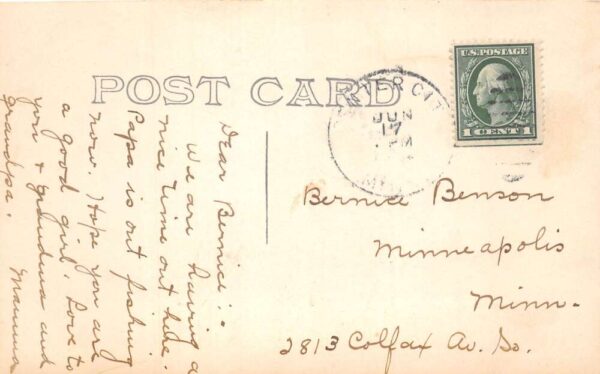 POST CARD
Dear Bernice:-
We are having a
nice time out here.
Papa is out fishing
now. Hope you are
a good girl. Love to
you & grandma and
grandpa.
Mamma
CENTER CITY
JUN
17
PM
U.S. POSTAGE
1 CENT 1
Bernice Benson
Minneapolis
Minn-
2813 Colfax Av. So.